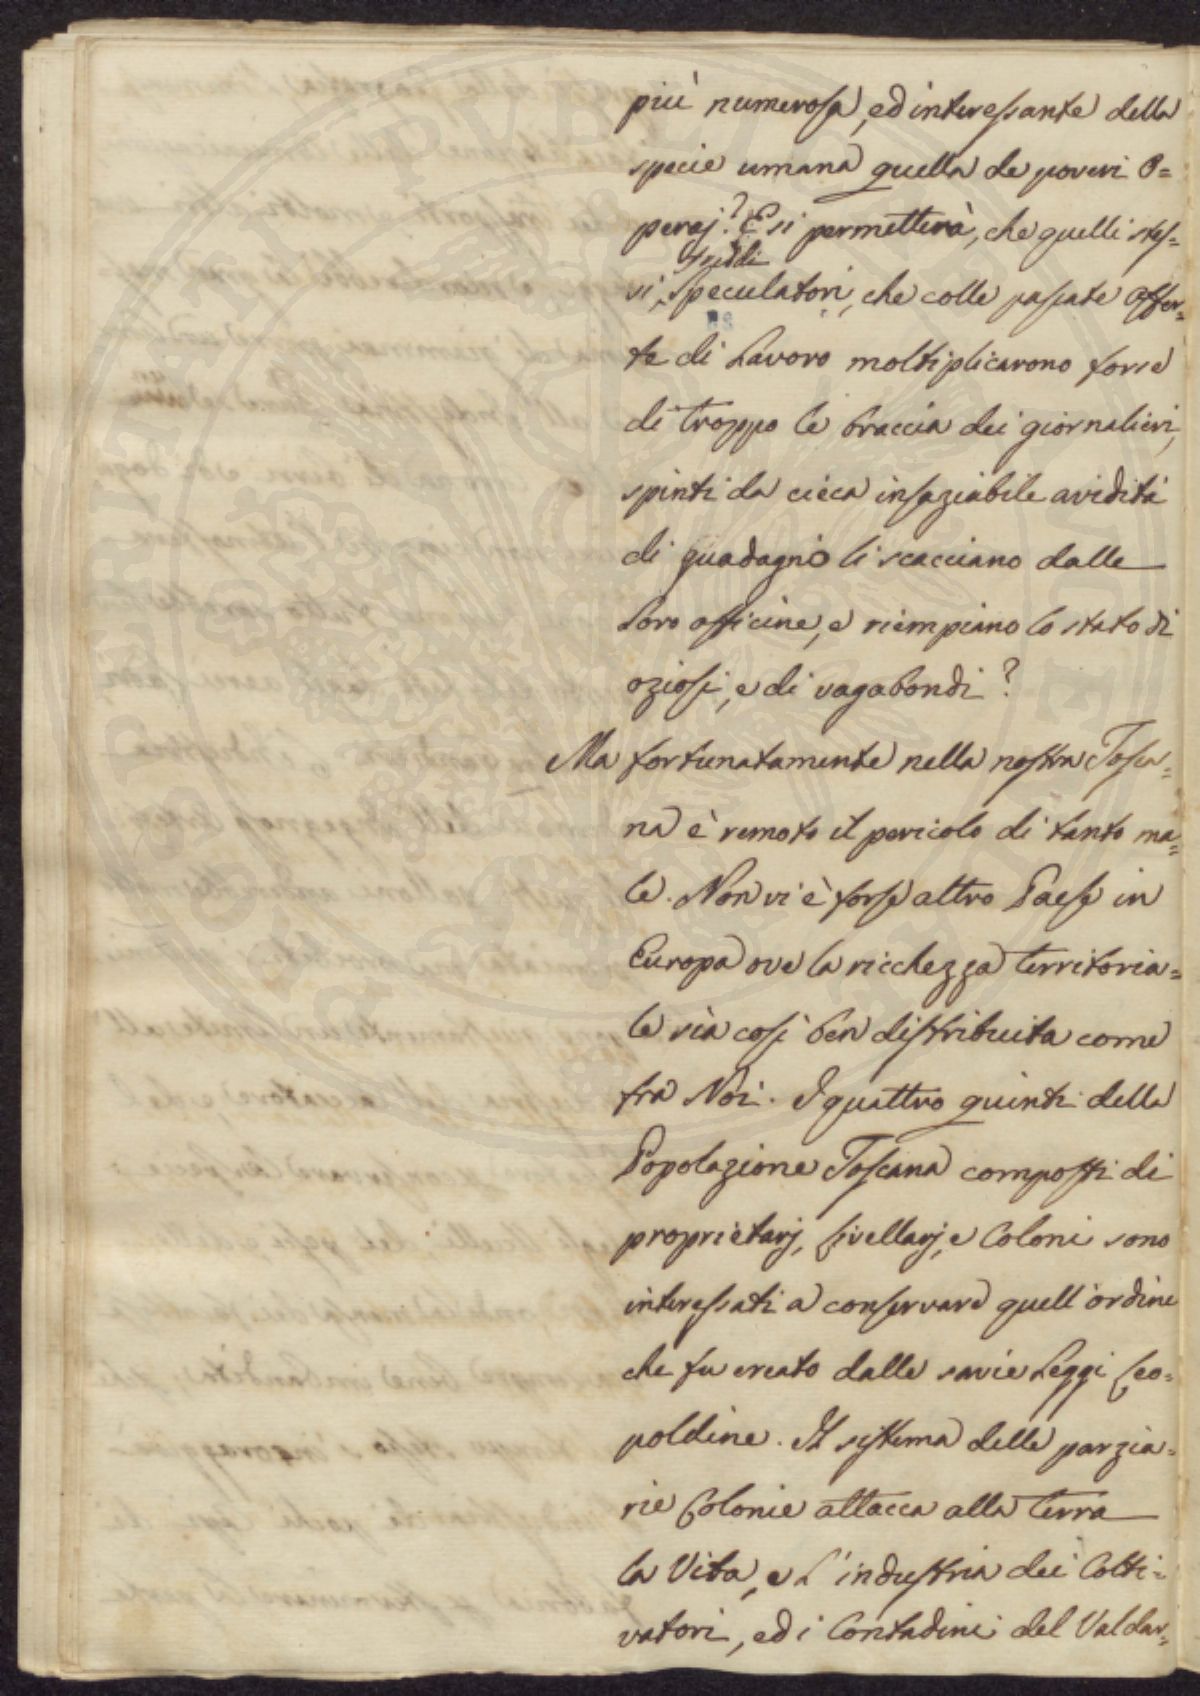 più numerosa, ed interessante della
specie umana quella de poveri O=
peraj? E si permetterà, che quelli stes=
freddi
si, speculatori, che colle passate offer=
te di Lavoro moltiplicarono forse
di troppo le braccia dei giornalieri,
spinti da cieca insaziabile avidità
di guadagno li scacciano dalle
loro officine, e riempiano lo stato di
oziosi, e di vagabondi?
Ma fortunatamente nella nostra Tosca=
na è remoto il pericolo di tanto ma=
le. Non vi è forse altro Paese in
Europa ove la ricchezza territoria=
le sia così ben distribuita come
fra Noi. I quattro quinti della
Popolazione Toscana composti di
proprietarj, Livellarj, e Coloni sono
interessati a conservare quell'ordine
che fu creato dalle savie Leggi Leo=
poldine. Il sistema delle parzia=
rie Colonie attacca alla terra
la Vita, e L'industria dei Colti=
vatori, ed i Contadini del Valdar=